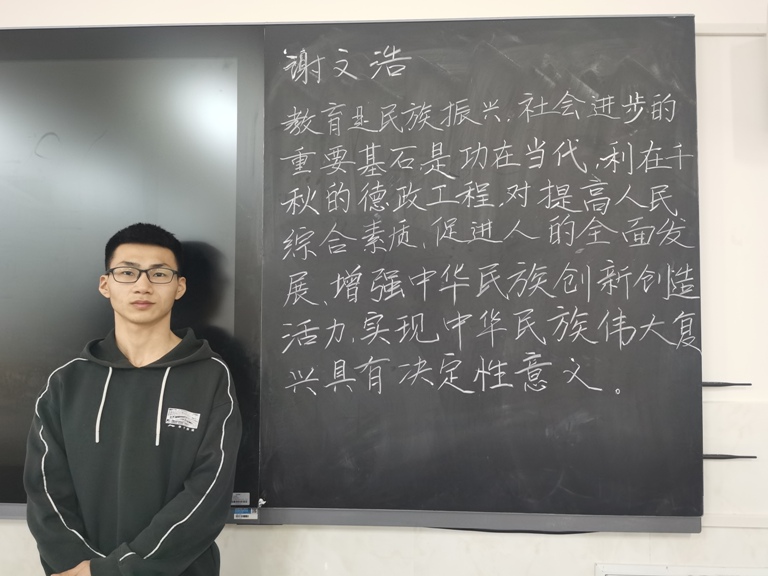 谢文浩
教育是民族振兴、社会进步的
重要基石是功在当代、利在千
秋的德政工程,对提高人民
综合素质、促进人的全面发
展、增强中华民族创新创造
活力、实现中华民族伟大复
兴具有决定性意义。